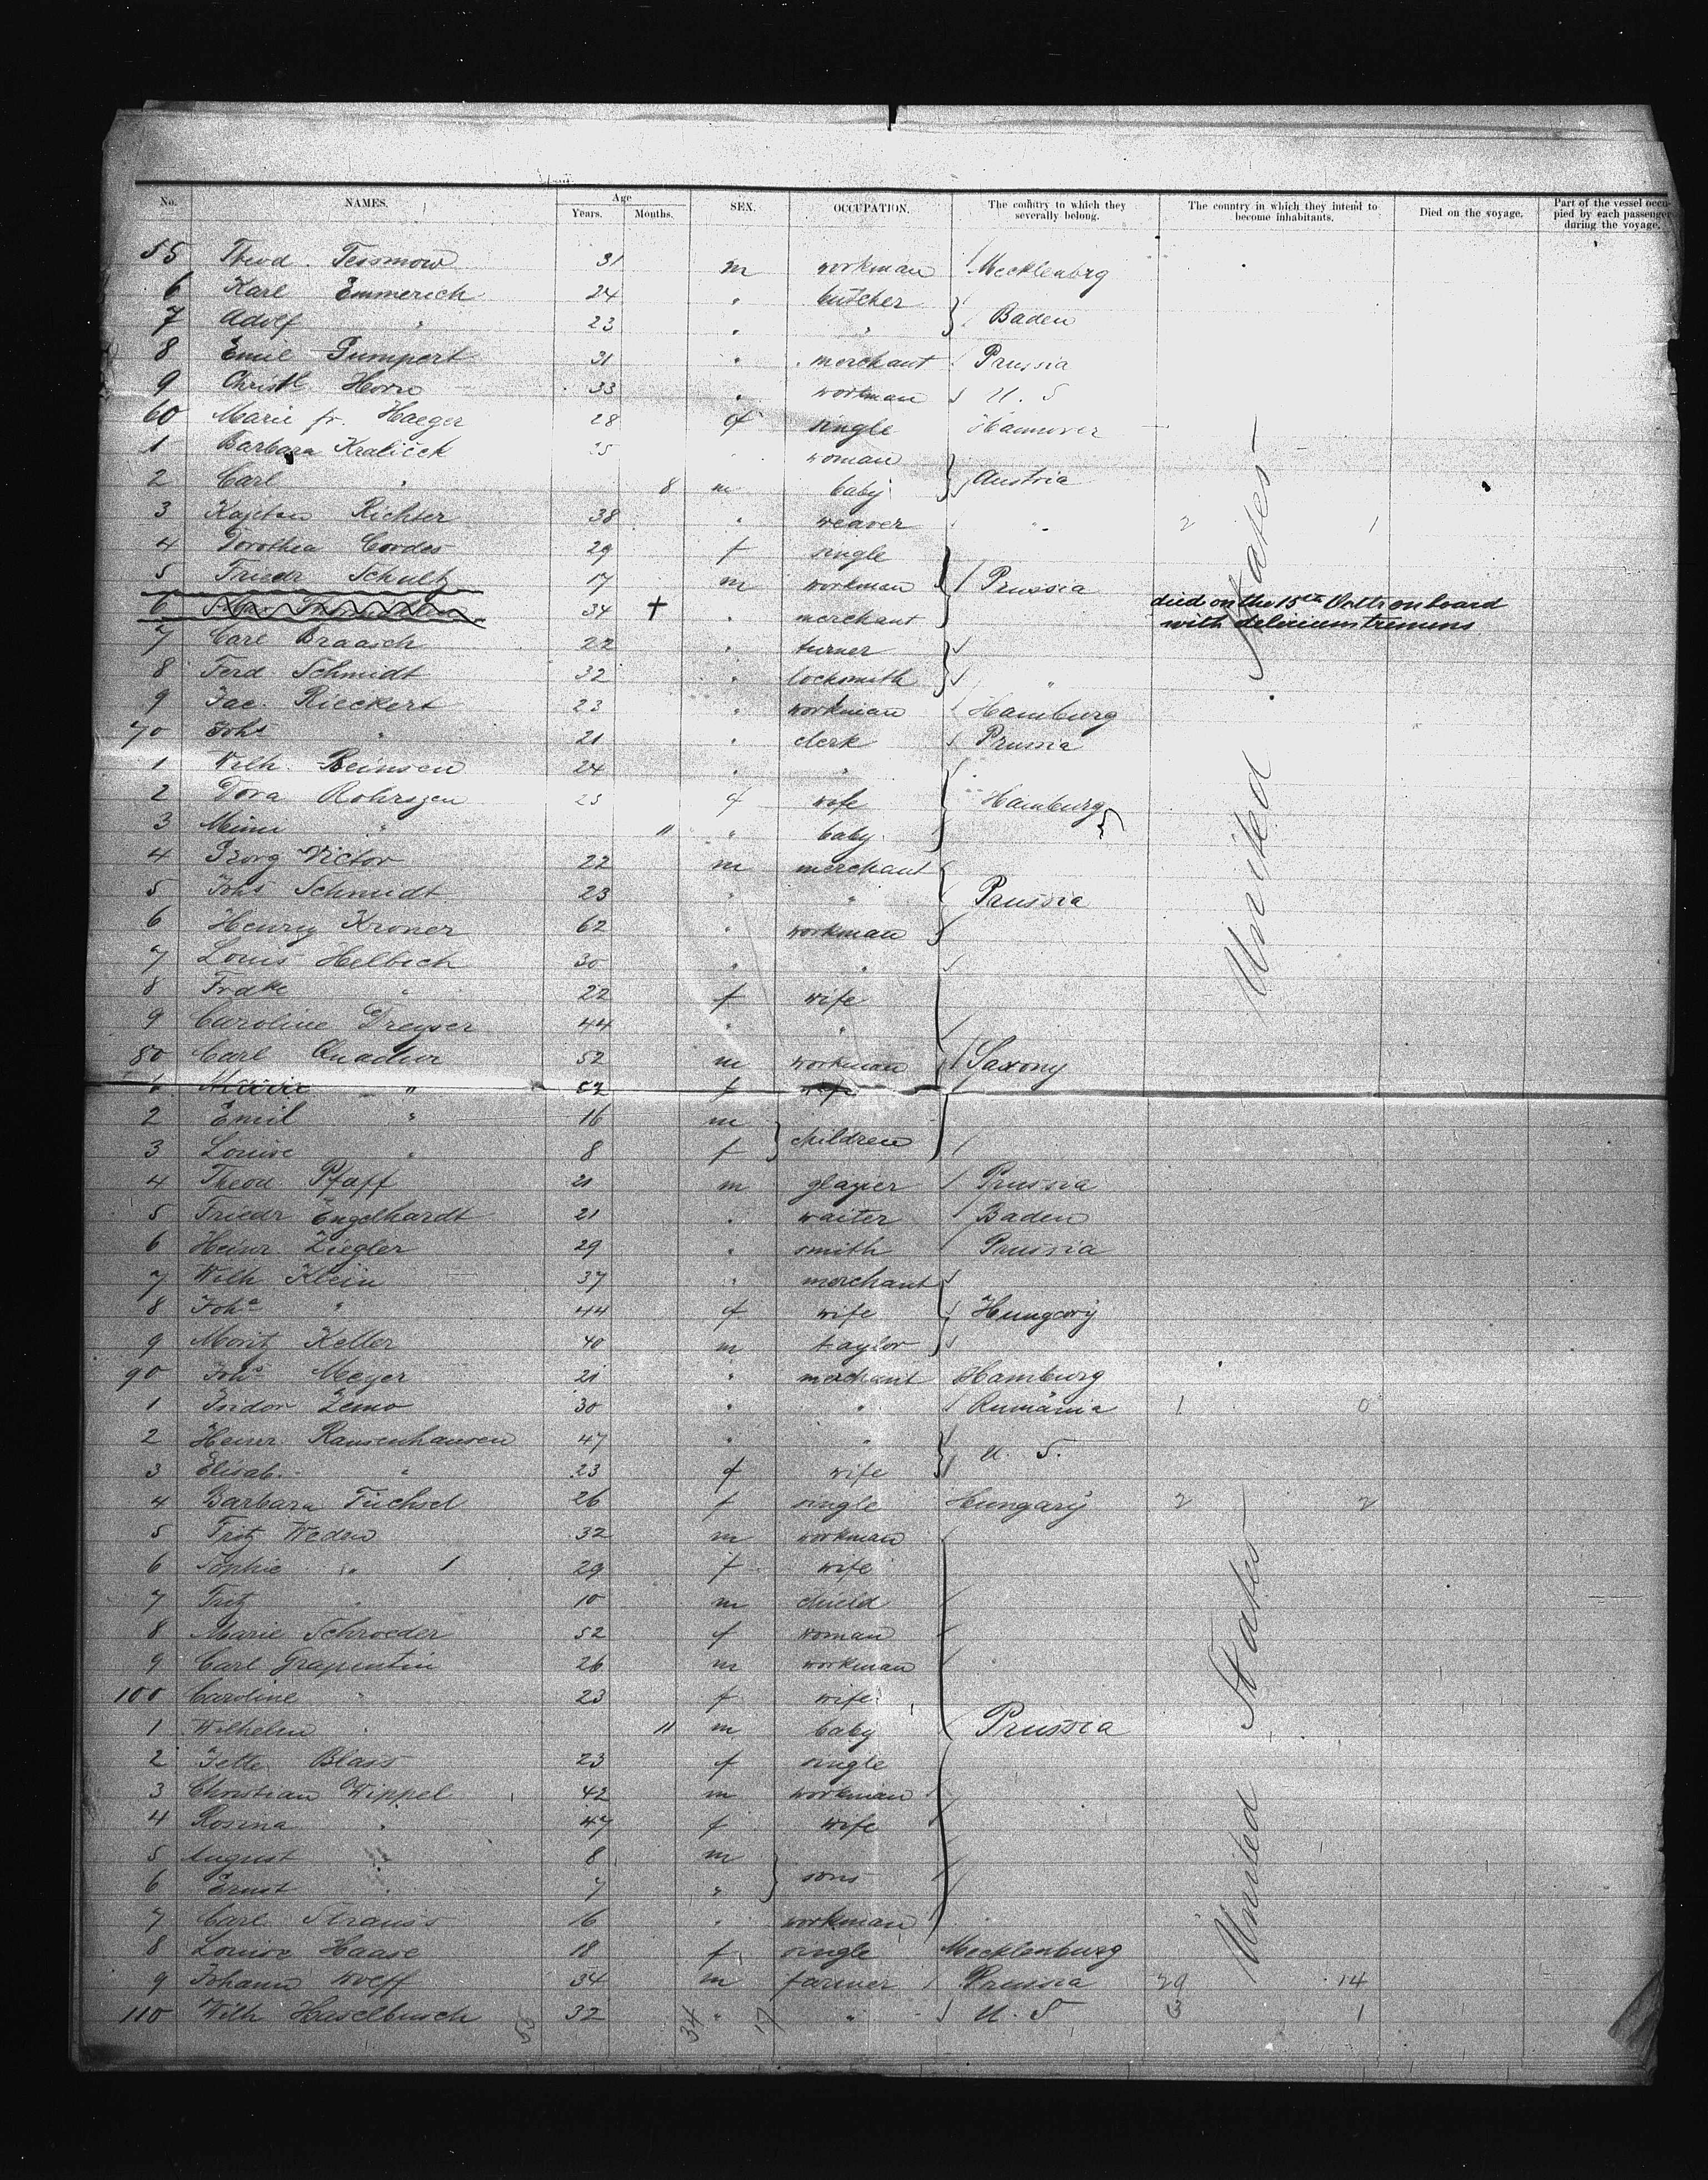 No. NAMES. Age Years. Months. SEX. OCCUPATION. The country to which they severally belong. The country in which they intend to become inhabitants. Died on the voyage. Part of the vessel occupied by each passenger during the voyage.
55 Theod. Tessmow 31 m workman Mecklenbrg
6 Karl Emmerich 24 " butcher } Baden
7 Adolf " 23 " "
8 Emil Gumpert 31 " merchant Prussia
9 Christ. Horn 33 " workman U. S
60 Marie fr. Haeger 28 f single Hannover
1 Barbara Kraliček 25 woman } Austria
2 Carl " 8 m baby
3 Kajetan Richter 38 " weaver " 2 1
4 Dorothea Cordes 29 f single
5 Friedr Schultz 17 m workman } Prussia
6 34 + " merchant died on the 15th Octtr on board with delirium tremens
7 Carl Braasch 22 " turner
8 Ferd. Schmidt 32 " locksmith "
9 Jac. Rieckert 23 " workman Hamburg
70 Johs " 21 " clerk Prussia
1 Wilh. Reinsen 24 " "
2 Dora Rohrszen 23 f wife } Hamburg
3 Mimi " 11 " baby
4 Georg Victor 22 m merchant
5 Johs Schmidt 23 " " Prussia
6 Henry Kroner 62 " workman
7 Louis Helbich 30 " "
8 Frdke " 22 f wife
9 Caroline Dreyser 44 " "
80 Carl 52 m workman Saxony
1 Marie " 52 f wife
2 Emil " 16 m } children
3 Louise " 8 f
4 Theod. Pfaff 21 m glazier Prussia
5 Friedr Engelhardt 21 " waiter Baden
6 Heinr. Ziegler 29 " smith Prussia
7 Wilh Klein 37 " merchant
8 Joha " 44 f wife } Hungary
9 Moritz Keller 40 m taylor
90 Johs Meyer 21 " merchant Hamburg
1 Isidor Zemo 30 " " Rumänia 1 0
2 Heinr. Rausenhausen 47 " " } U. S.
3 Elisab. " 23 f wife
4 Barbara Füchsel 26 f single Hungary 2 2
5 Fritz Weden 32 m workman
6 Sophie " 1 29 f wife
7 Fritz " 10 m child
8 Marie Schroeder 52 f woman
9 Carl Grapentin 26 m workman
100 Caroline " 23 f wife
1 Wilhelm " 11 m baby Prussia
2 Jette Blass 23 f single
3 Christian Wippel 42 m workman
4 Rosina " 47 f wife
5 August " 8 m } sons
6 Ernst " 7 "
7 Carl Strauss 16 " workman
8 Louise Haase 18 f single Mecklenburg
9 Johann Wolff 34 m farmer Prussia 29 14
110 Wilh Haselbusch 32 " " U. S 3 1
55 34 17
United States
United States